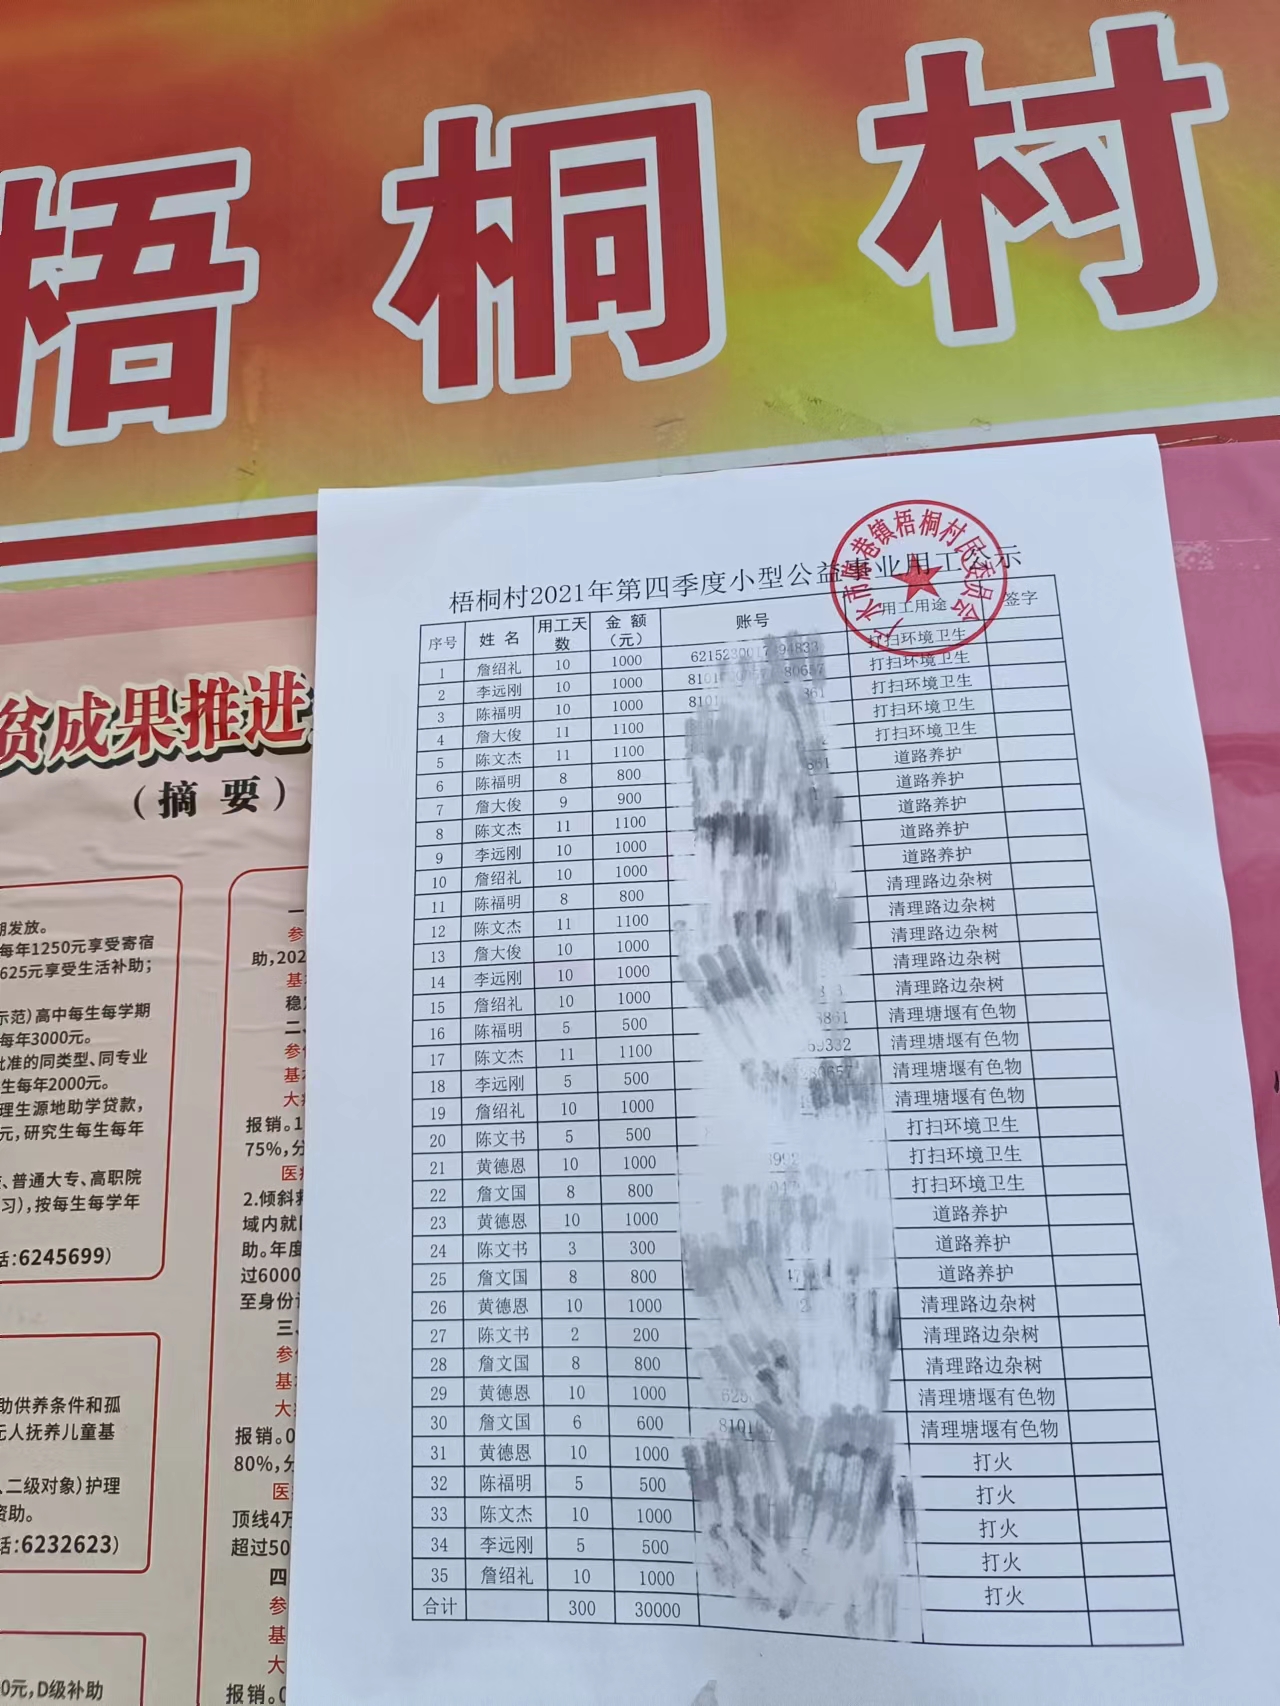 梧桐村
广水市陈巷镇梧桐村民委员会
梧桐村2021年第四季度小型公益事业用工公示
序号 姓名 用工天数 金额（元） 账号 用工用途 签字
1 詹绍礼 10 1000 打扫环境卫生
2 李远刚 10 1000 打扫环境卫生
3 陈福明 10 1000 打扫环境卫生
4 詹大俊 11 1100 打扫环境卫生
5 陈文杰 11 1100 打扫环境卫生
6 陈福明 8 800 道路养护
7 詹大俊 9 900 道路养护
8 陈文杰 11 1100 道路养护
9 李远刚 10 1000 道路养护
10 詹绍礼 10 1000 道路养护
11 陈福明 8 800 清理路边杂树
12 陈文杰 11 1100 清理路边杂树
13 詹大俊 10 1000 清理路边杂树
14 李远刚 10 1000 清理路边杂树
15 詹绍礼 10 1000 清理路边杂树
16 陈福明 5 500 清理塘堰有色物
17 陈文杰 11 1100 清理塘堰有色物
18 李远刚 5 500 清理塘堰有色物
19 詹绍礼 10 1000 清理塘堰有色物
20 陈文书 5 500 打扫环境卫生
21 黄德恩 10 1000 打扫环境卫生
22 詹文国 8 800 打扫环境卫生
23 黄德恩 10 1000 道路养护
24 陈文书 3 300 道路养护
25 詹文国 8 800 道路养护
26 黄德恩 10 1000 清理路边杂树
27 陈文书 2 200 清理路边杂树
28 詹文国 8 800 清理路边杂树
29 黄德恩 10 1000 清理塘堰有色物
30 詹文国 6 600 清理塘堰有色物
31 黄德恩 10 1000 打火
32 陈福明 5 500 打火
33 陈文杰 10 1000 打火
34 李远刚 5 500 打火
35 詹绍礼 10 1000 打火
合计 300 30000
贫成果推进
（摘要）
期发放。
每年1250元享受寄宿
625元享受生活补助；
示范）高中每生每学期
每年3000元。
批准的同类型、同专业
生每年2000元。
理生源地助学贷款，
元，研究生每生每年
、普通大专、高职院
习），按每生每学年
话:6245699）
助供养条件和孤
无人抚养儿童基
、二级对象）护理
资助。
话:6232623）
0元，D级补助
一
参
助，202
基
稳
二、
参
基
大
报销。1
75%，分
医
2.倾斜救
域内就
助。年度
过6000
至身份
三、
参
基
大
报销。0
80%，分
医
顶线4万
超过50
四
参
基
大
报销。0